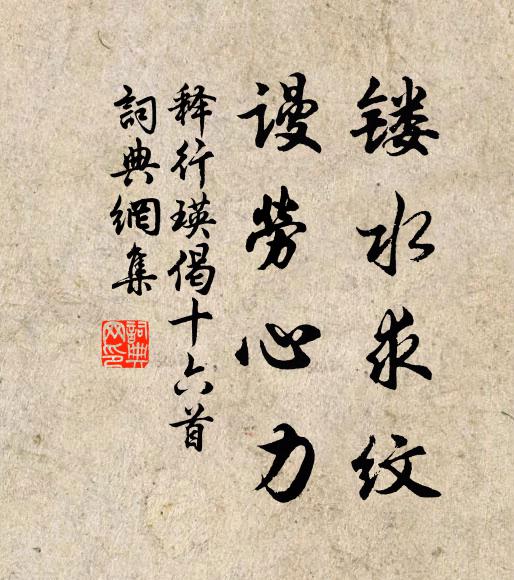 镂水求纹
谩劳心力
释行瑛偈十六首
词典網集
詞典网印